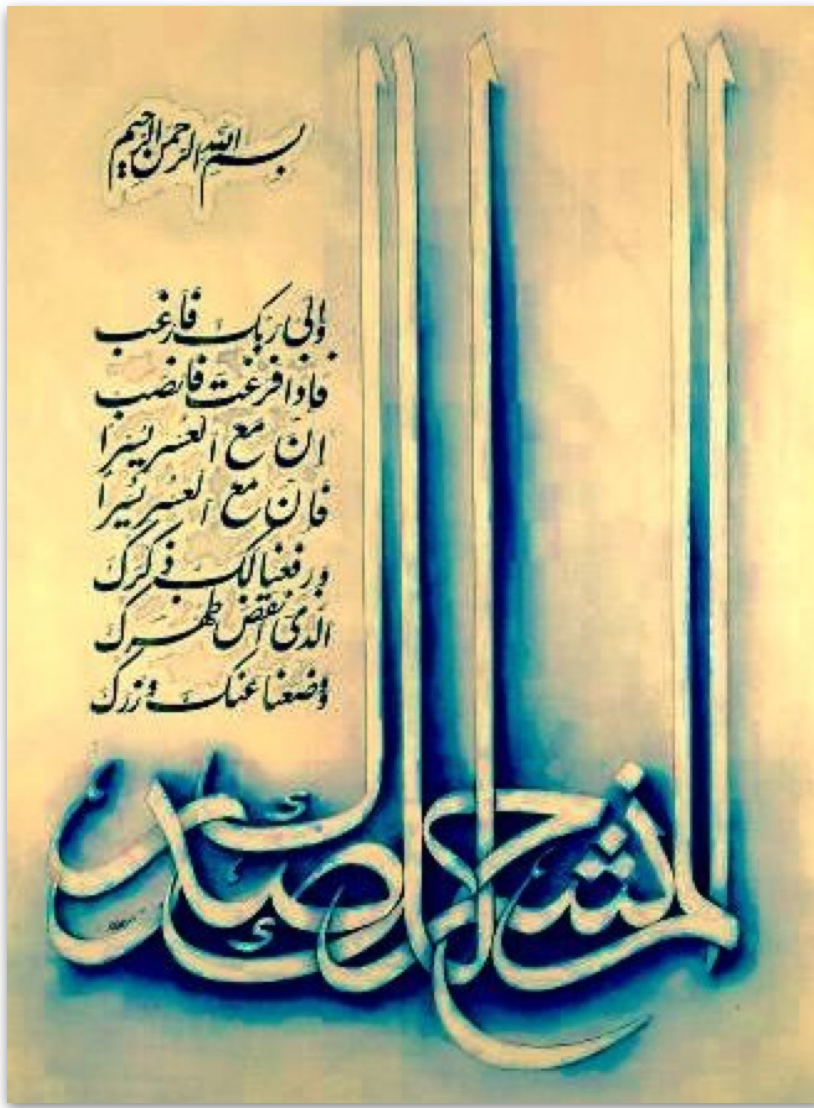 بسم الله الرحمن الرحیم
وإلی ربک فارغب
فاذا فرغت فانصب
انّ مع العسر یسراً
فانّ مع العسر یسراً
ورفعنا لک ذکرک
الّذی انقض ظهرک
ووضعنا عنک وزرک
الم نشرح لک صدرک